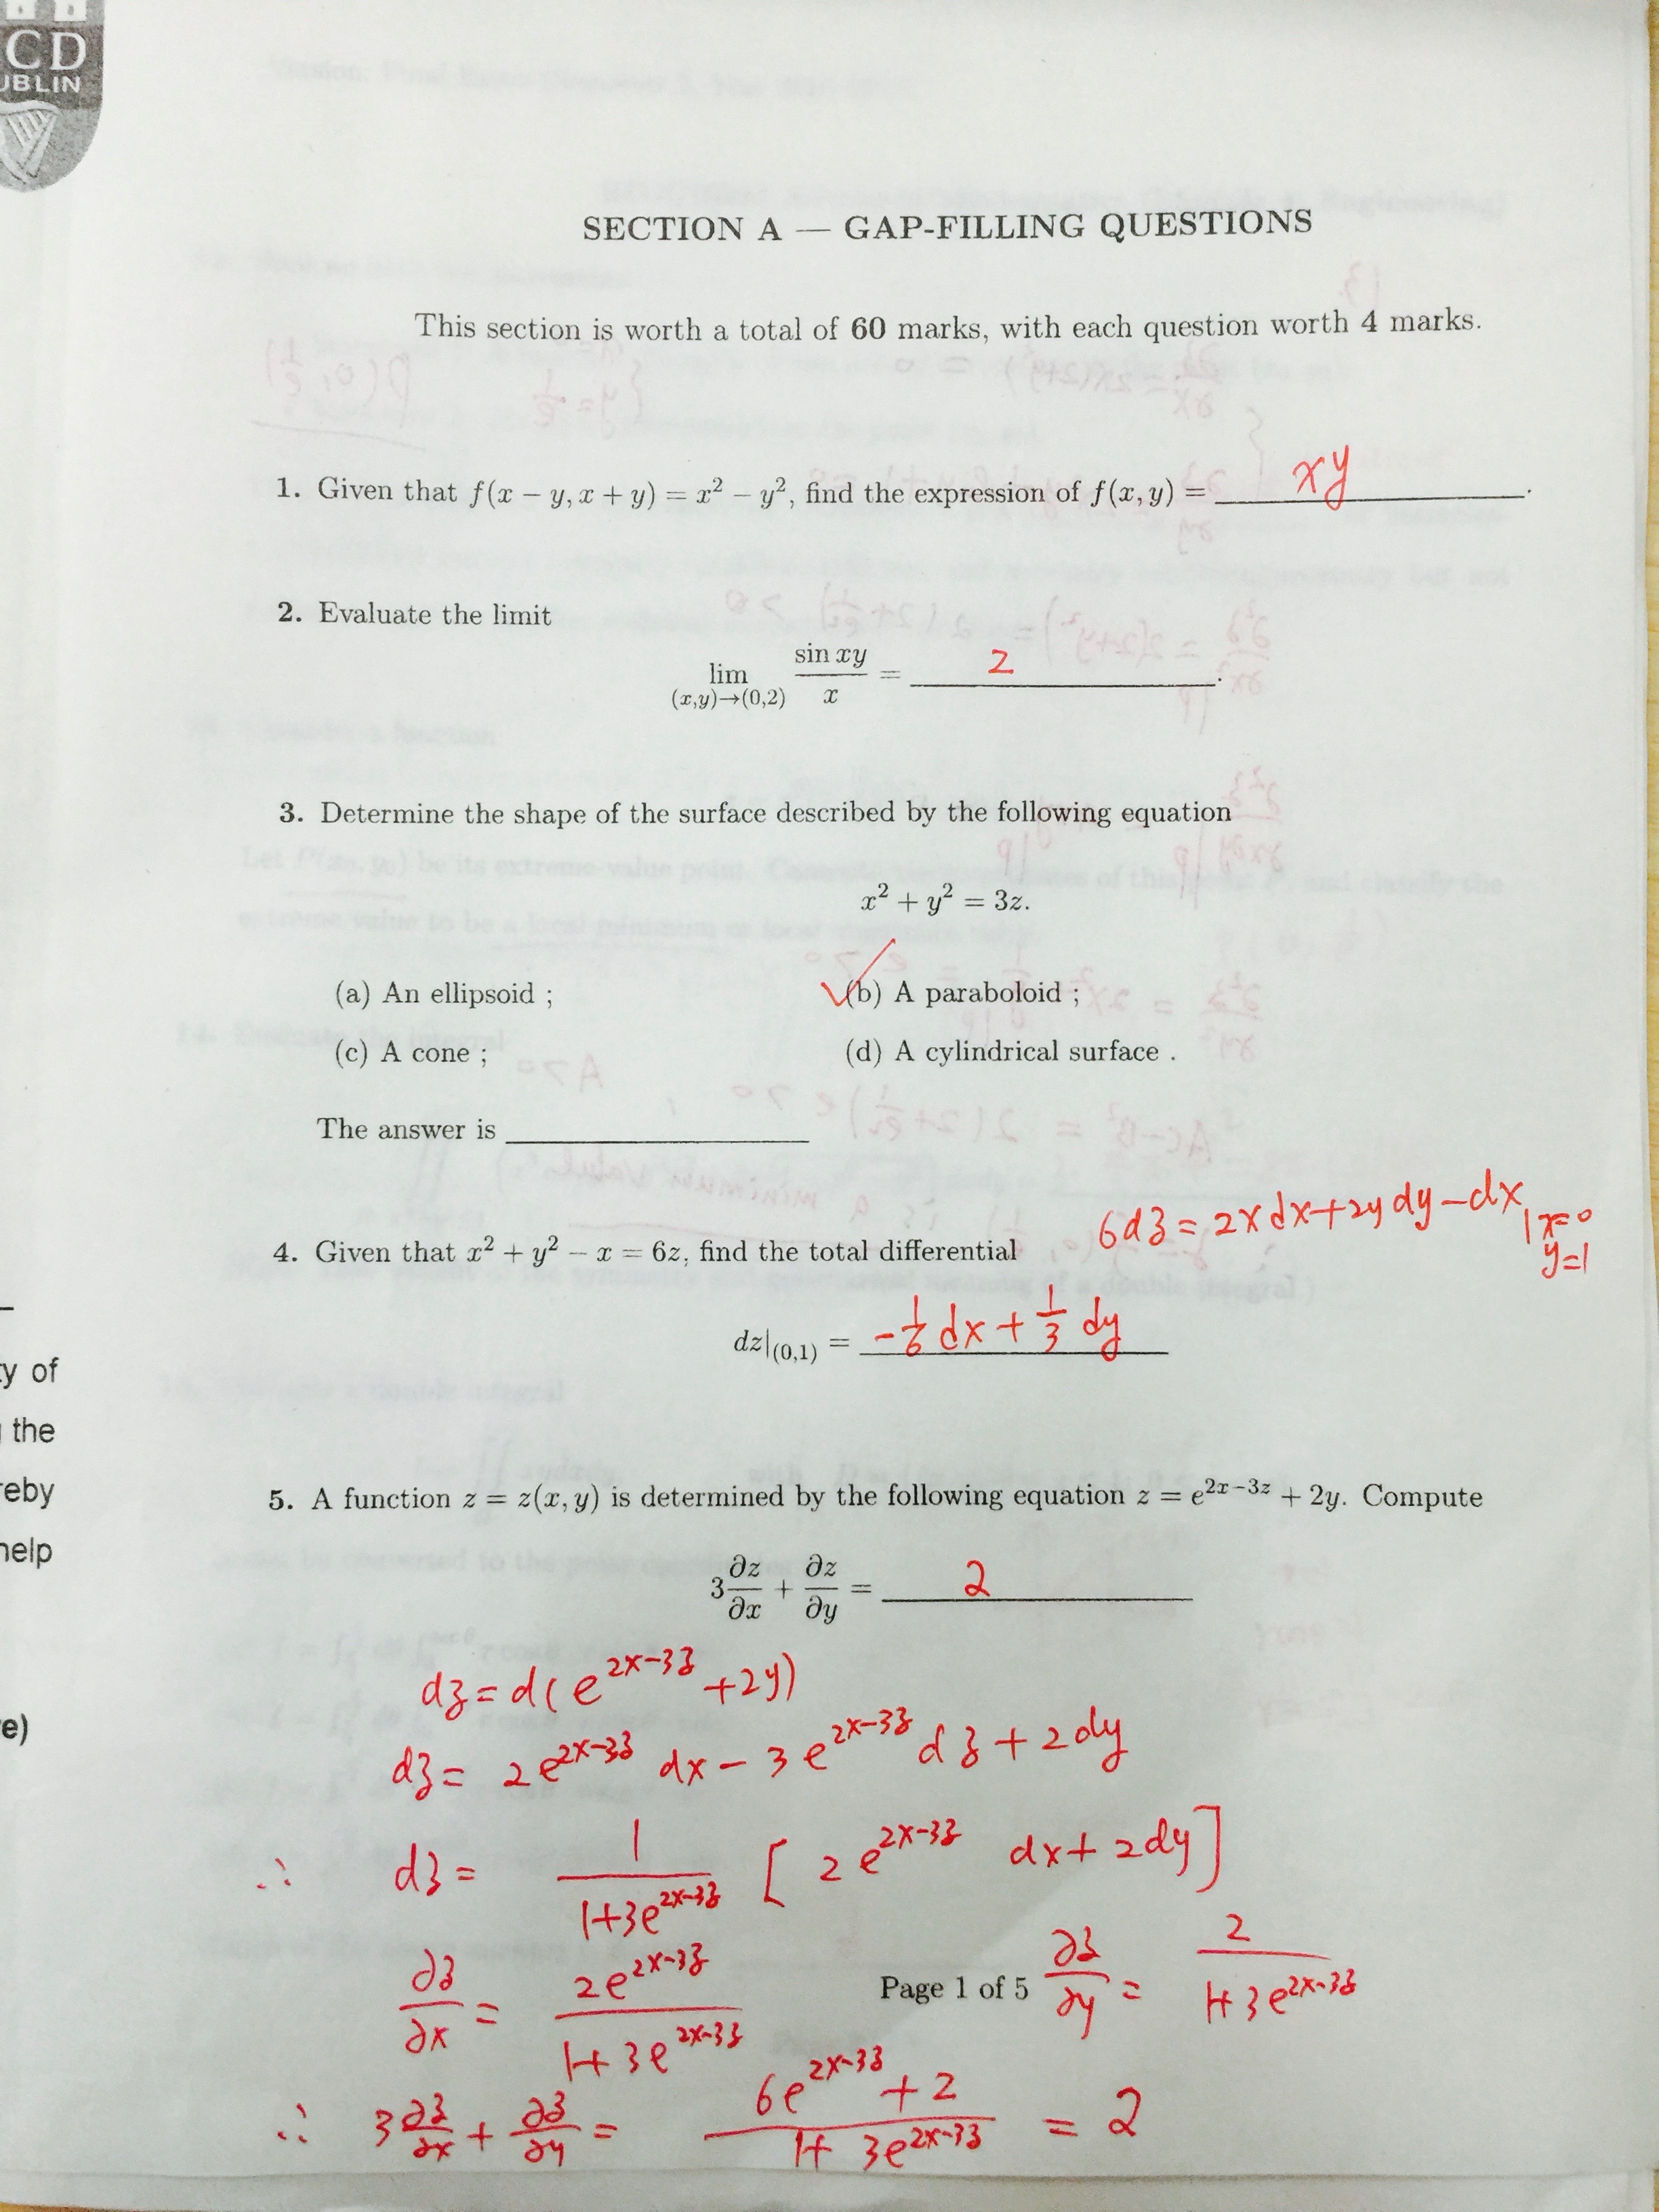 CD
UBLIN
SECTION A — GAP-FILLING QUESTIONS
This section is worth a total of 60 marks, with each question worth 4 marks.
1. Given that f(x − y, x + y) = x² − y², find the expression of f(x, y) = xy .
2. Evaluate the limit
lim (x,y)→(0,2) sin xy / x = 2 .
3. Determine the shape of the surface described by the following equation
x² + y² = 3z.
(a) An ellipsoid ; ✓(b) A paraboloid ;
(c) A cone ; (d) A cylindrical surface .
The answer is
6dz = 2x dx + 2y dy − dx | x=0 y=1
4. Given that x² + y² − x = 6z, find the total differential
dz|(0,1) = −1/6 dx + 1/3 dy
y of
the
reby
help
e)
5. A function z = z(x, y) is determined by the following equation z = e^(2x−3z) + 2y. Compute
3 ∂z/∂x + ∂z/∂y = 2
dz = d(e^(2x−3z) + 2y)
dz = 2e^(2x−3z) dx − 3e^(2x−3z) dz + 2dy
∴ dz = 1/(1+3e^(2x−3z)) [2e^(2x−3z) dx + 2dy]
∂z/∂x = 2e^(2x−3z) / (1+3e^(2x−3z)) Page 1 of 5 ∂z/∂y = 2 / (1+3e^(2x−3z))
∴ 3 ∂z/∂x + ∂z/∂y = (6e^(2x−3z) + 2) / (1+3e^(2x−3z)) = 2